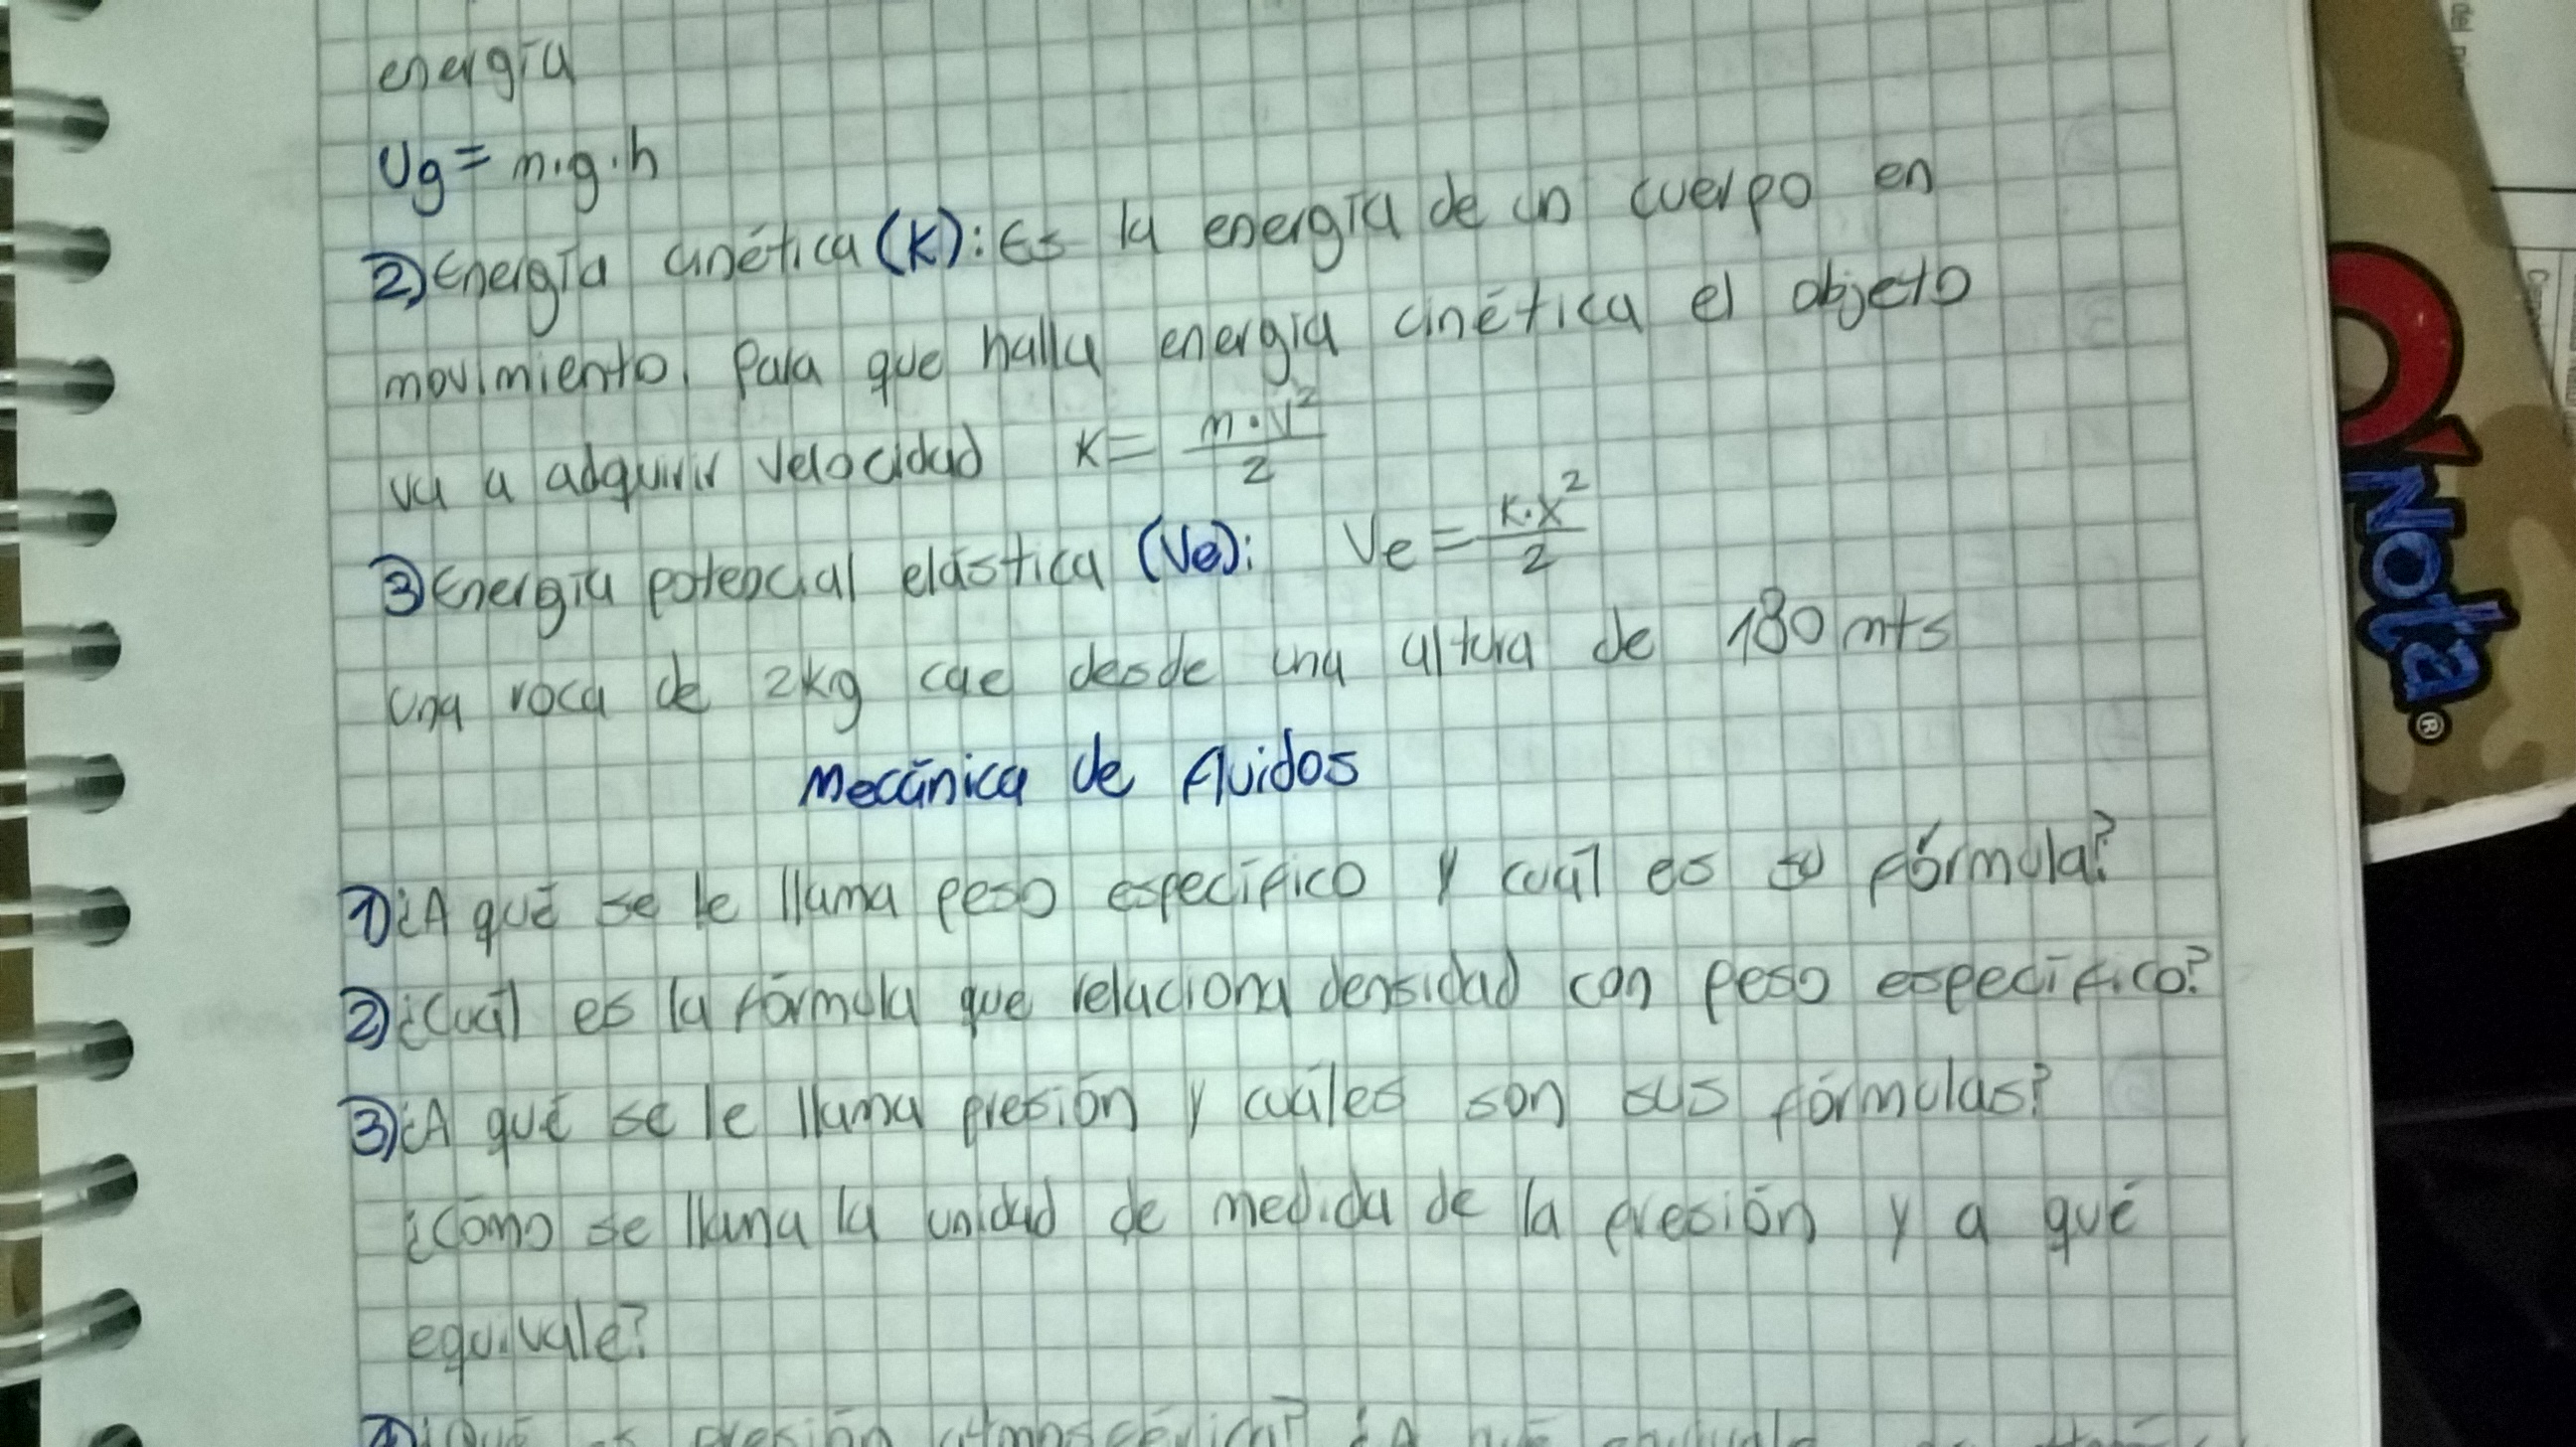 energía
Ug= m.g.h
2) Energía cinética (K): Es la energía de un cuerpo en
movimiento. Para que halla energía cinética el objeto
va a adquirir velocidad K= m·v²/2
3) Energía potencial elástica (Ve): Ve= K·x²/2
una roca de 2kg cae desde una altura de 180 mts
Mecánica de fluidos
1) ¿A qué se le llama peso específico y cuál es su fórmula?
2) ¿Cuál es la fórmula que relaciona densidad con peso específico?
3) ¿A qué se le llama presión y cuáles son sus fórmulas?
¿Cómo se llama la unidad de medida de la presión y a qué
equivale?
4) ¿Qué es presión atmosférica? ¿A qué equivale
Q'
Nota®